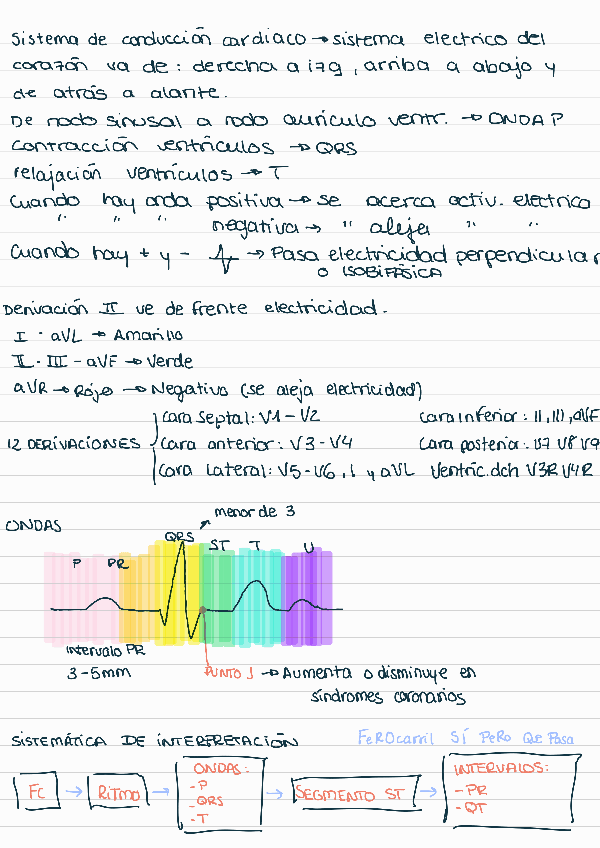 Sistema de conducción cardiaco → sistema electrico del
corazón va de: derecha a izq, arriba a abajo y
de atrás a alante.
De nodo sinusal a nodo auriculo ventr. → ONDA P
Contracción ventrículos → QRS
relajación ventrículos → T
Cuando hay onda positiva → se acerca activ. electrica
" " " negativa → " aleja " "
Cuando hay + y - → Pasa electricidad perpendicular
o ISOBIFÁSICA
Derivación II ve de frente electricidad.
I - aVL → Amarillo
II - III - aVF → Verde
aVR → Rojo → Negativo (se aleja electricidad)
12 DERIVACIONES
Cara Septal: V1 - V2
Cara anterior: V3 - V4
Cara Lateral: V5 - V6, I y aVL
Cara inferior: II, III, aVF
Cara posterior: V7 V8 V9
Ventric. dch V3R V4R
ONDAS
menor de 3
P PR QRS ST T U
intervalo PR
3 - 5mm
PUNTO J → Aumenta o disminuye en
síndromes coronarios
SISTEMÁTICA DE INTERPRETACIÓN
FeROcarril SÍ PeRo Que Pasa
FC → RiTmo → ONDAS:
- P
- QRS
- T
→ SEGMENTO ST → INTERVALOS:
- PR
- QT